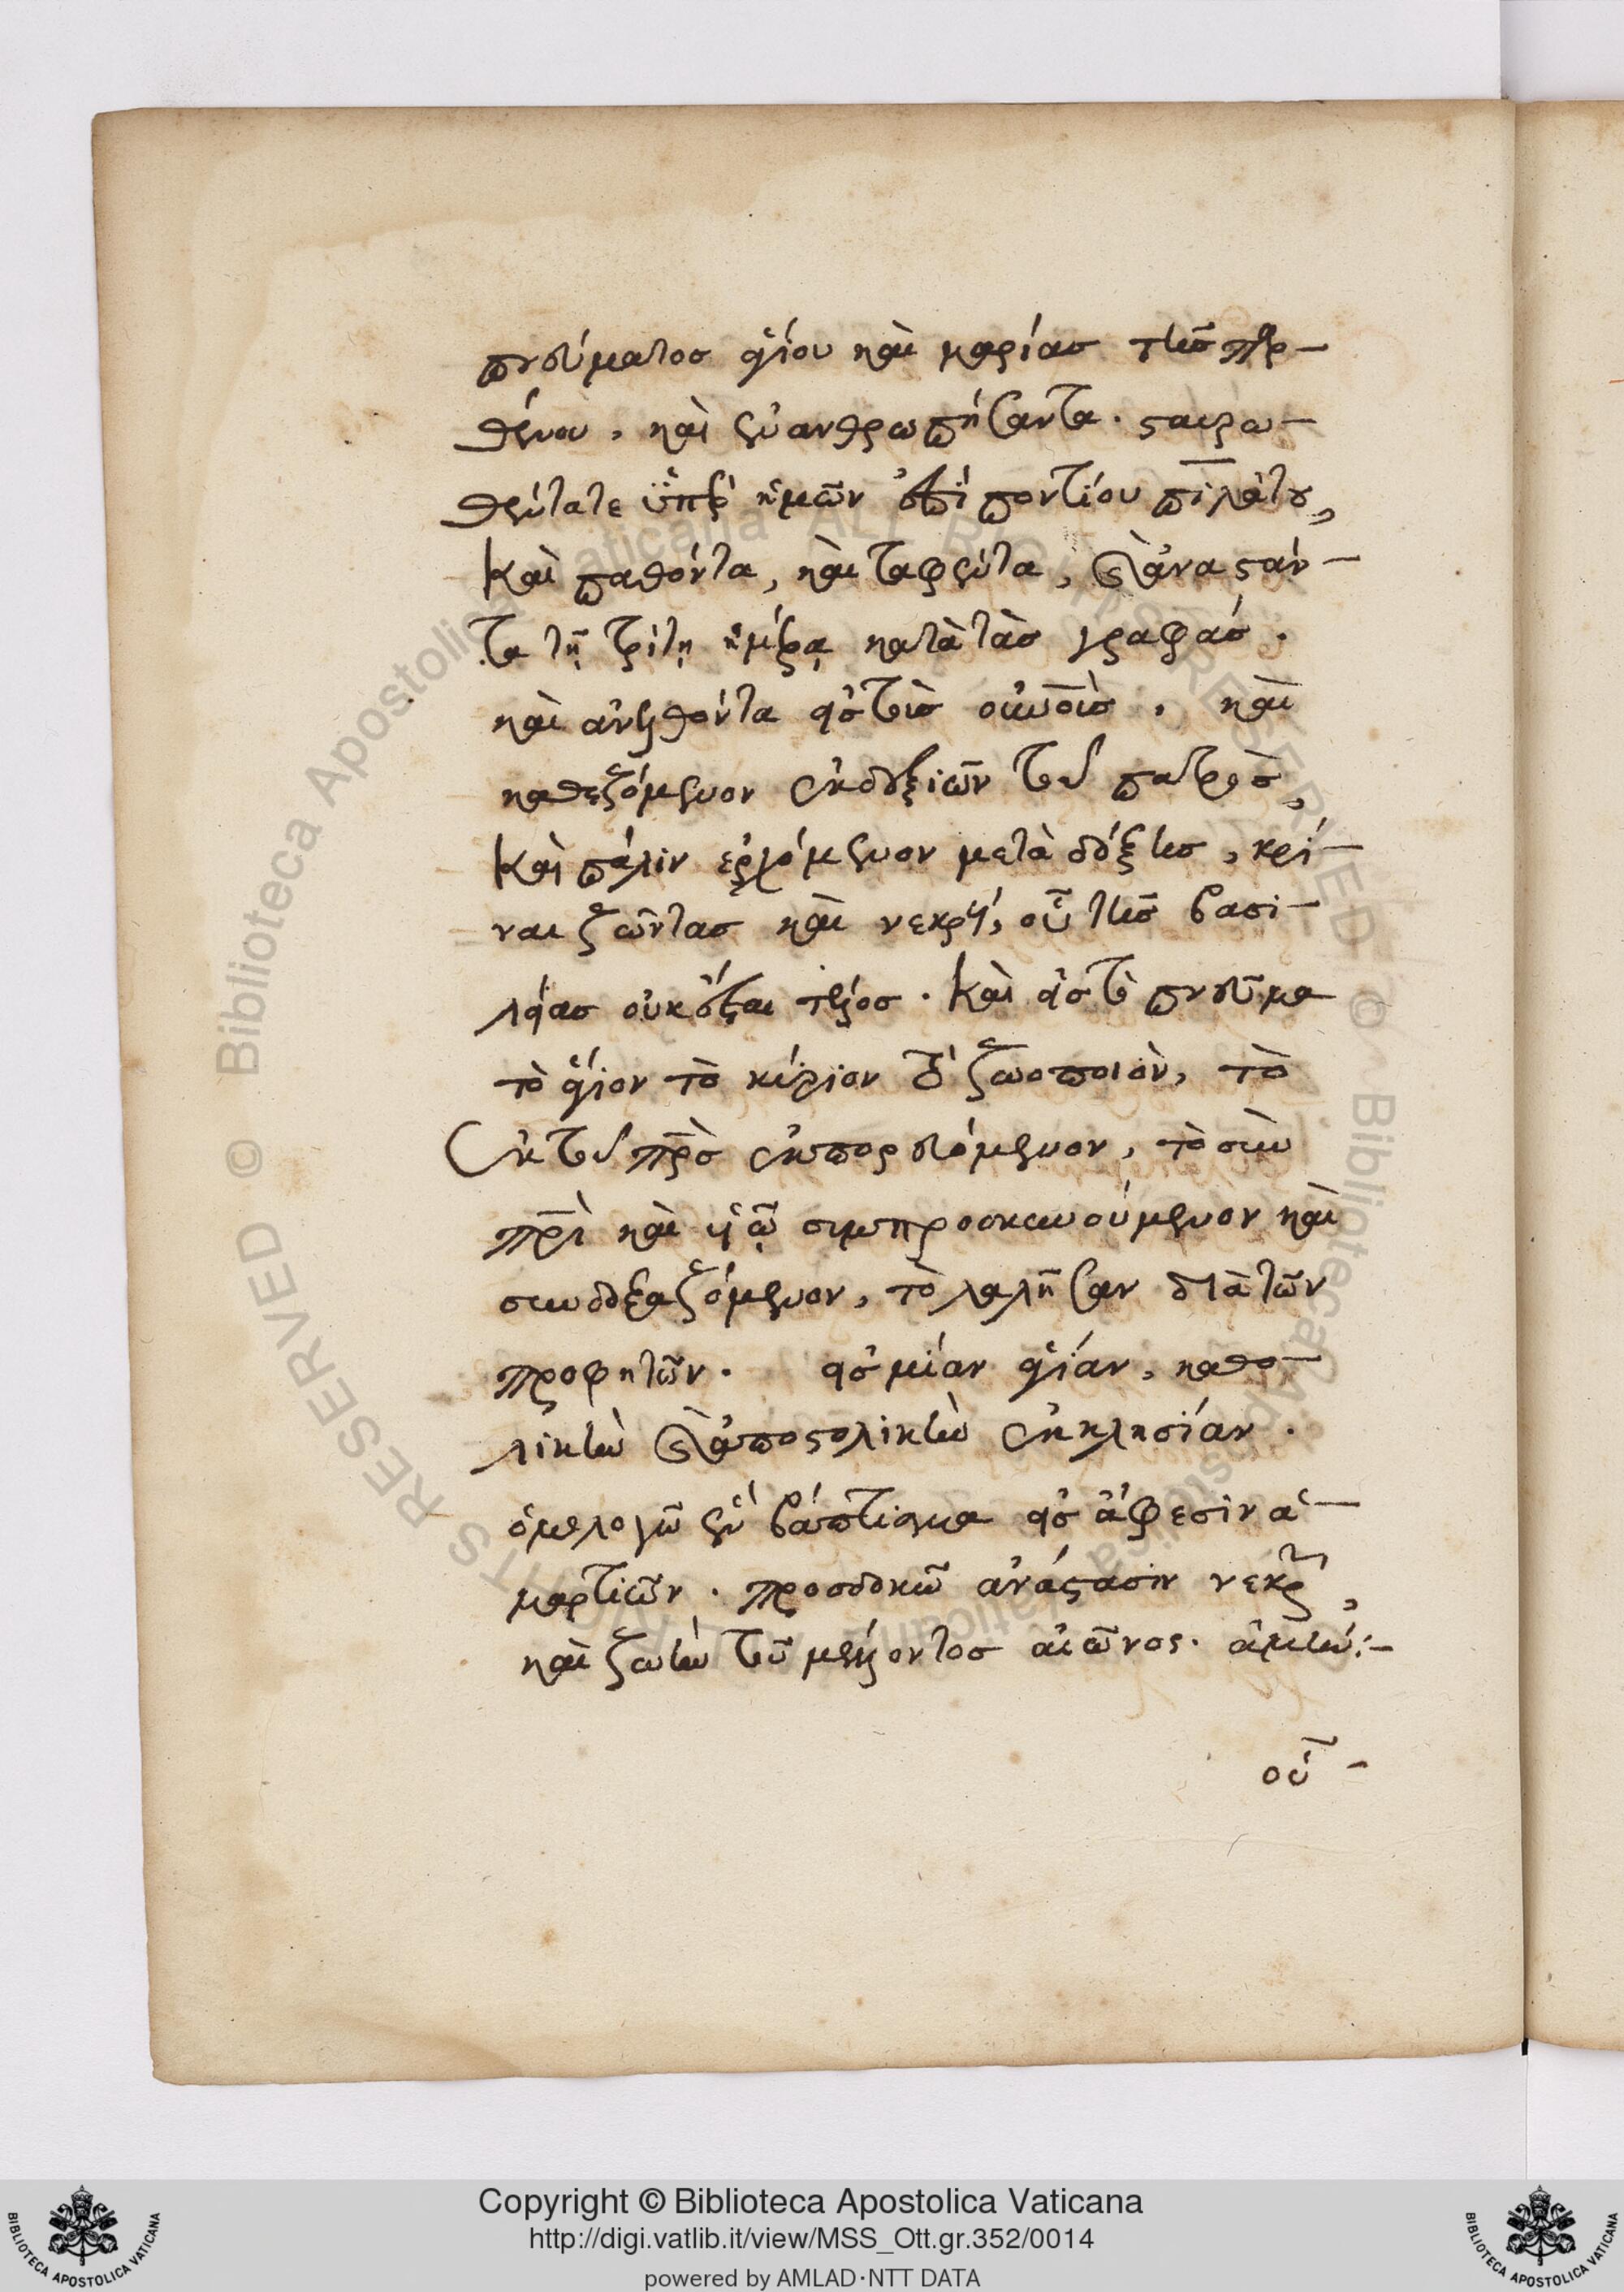 πνεύματος ἁγίου καὶ μαρίας τῆς παρ–
θένου, καὶ ἐνανθρωπήσαντα. σταυρω–
θέντατε ὑπὲρ ἡμῶν ἐπὶ ποντίου πιλάτου,
Καὶ παθόντα, καὶ ταφέντα, καὶ ἀναστάν–
τα τῇ τρίτῃ ἡμέρᾳ κατὰ τὰς γραφάς.
καὶ ἀνελθόντα εἰς τοὺς οὐνοὺς. καὶ
καθεζόμενον ἐκ δεξιῶν τοῦ πατρὸς,
Καὶ πάλιν ἐρχόμενον μετὰ δόξης, κρί–
ναι ζῶντας καὶ νεκρούς, οὗ τῆς βασι–
λείας οὐκ ἔσται τέλος. Καὶ εἰς τὸ πνεῦμα
τὸ ἅγιον τὸ κύριον τὸ ζωοποιὸν, τὸ
ἐκ τοῦ πρς ἐκπορευόμενον, τὸ σὺν
πρὶ καὶ υἱῷ συμπροσκυνούμενον καὶ
συνδοξαζόμενον, τὸ λαλῆσαν διὰ τῶν
προφητῶν. εἰς μίαν ἁγίαν, καθο–
λικὴν καὶ ἀποστολικὴν ἐκκλησίαν.
ὁμολογῶ ἓν βάπτισμα εἰς ἄφεσιν ἁ–
μαρτιῶν. προσδοκῶ ἀνάστασιν νεκρῶν,
καὶ ζωὴν τοῦ μέλλοντος αἰῶνος. ἀμήν:–
οὗ–
Copyright © Biblioteca Apostolica Vaticana
http://digi.vatlib.it/view/MSS_Ott.gr.352/0014
powered by AMLAD·NTT DATA
BIBLIOTECA APOSTOLICA VATICANA
BIBLIOTECA APOSTOLICA VATICANA